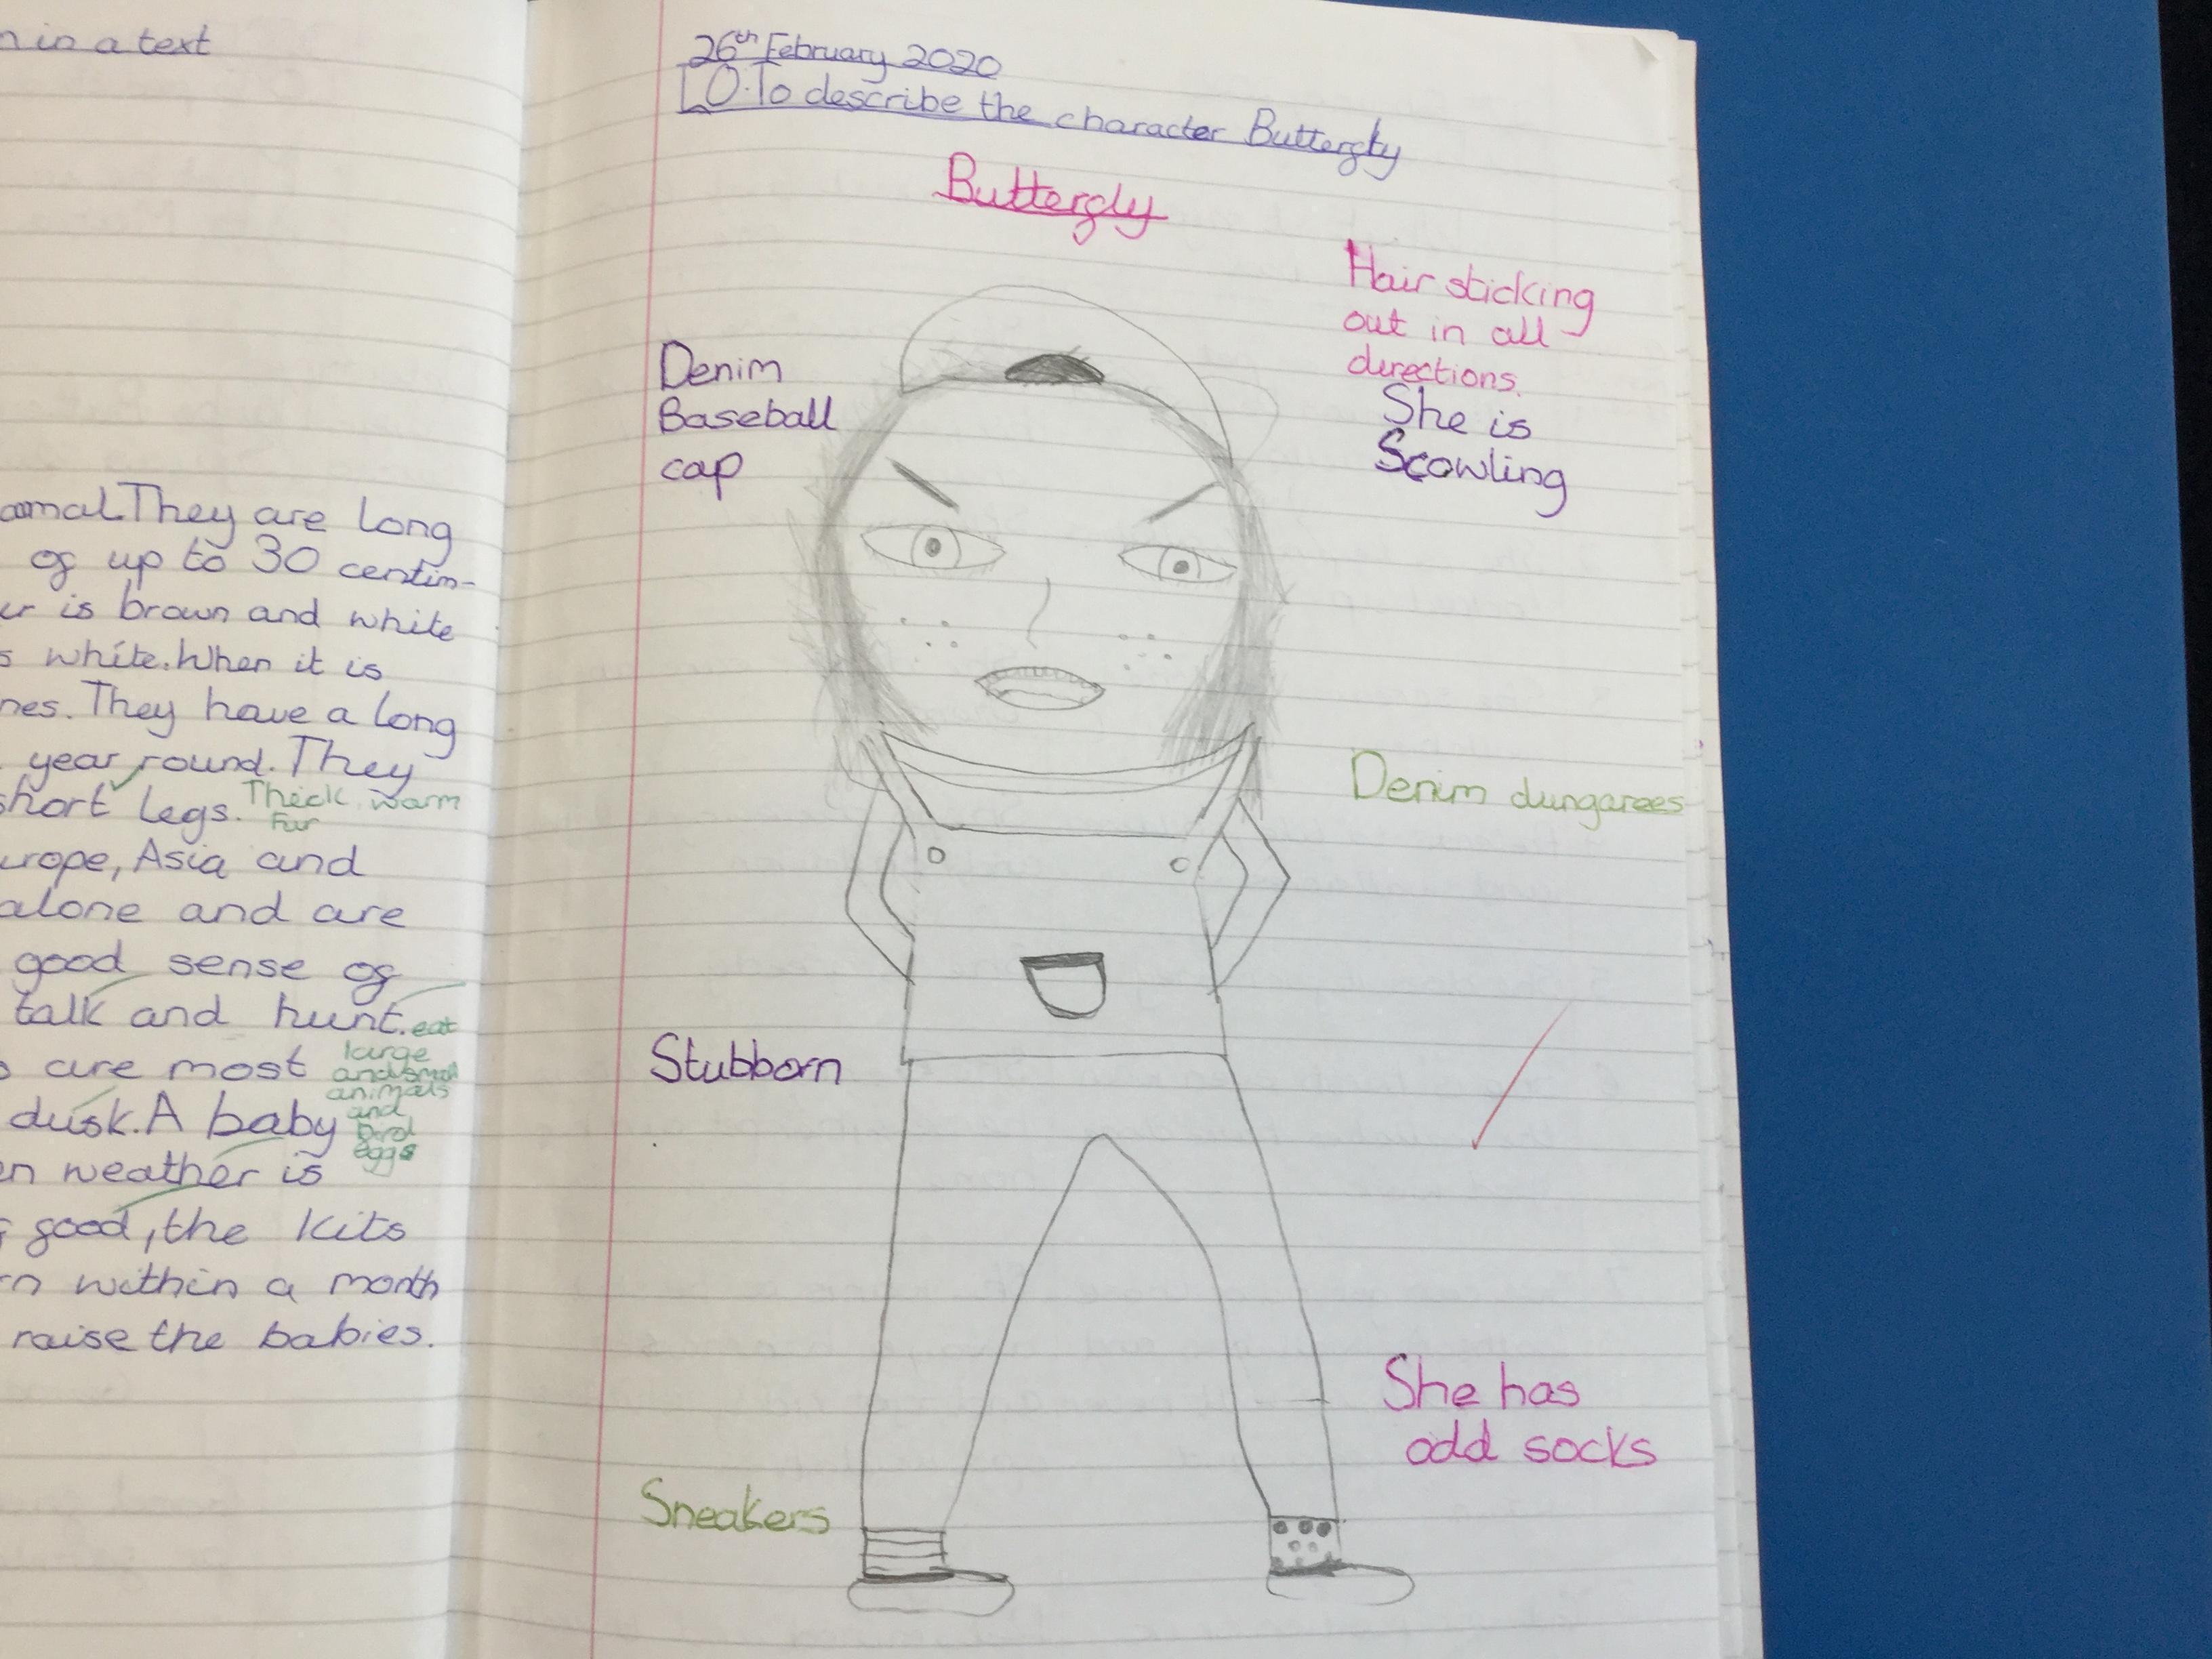 in a text
amal. They are long
of up to 30 centim-
ur is brown and white
s white. When it is
nes. They have a long
year round. They
short legs. Thick warm
Fur
urope, Asia and
alone and are
good sense of
talk and hunt. eat
large
are most and small
animals
and
dusk. A baby bird
eggs
en weather is
good, the kits
rn within a month
raise the babies.
26th February 2020
LO: To describe the character Butterfly
Butterfly
Hair sticking
out in all
directions.
She is
Scowling
Denim
Baseball
cap
Denim dungarees
Stubborn
She has
odd socks
Sneakers